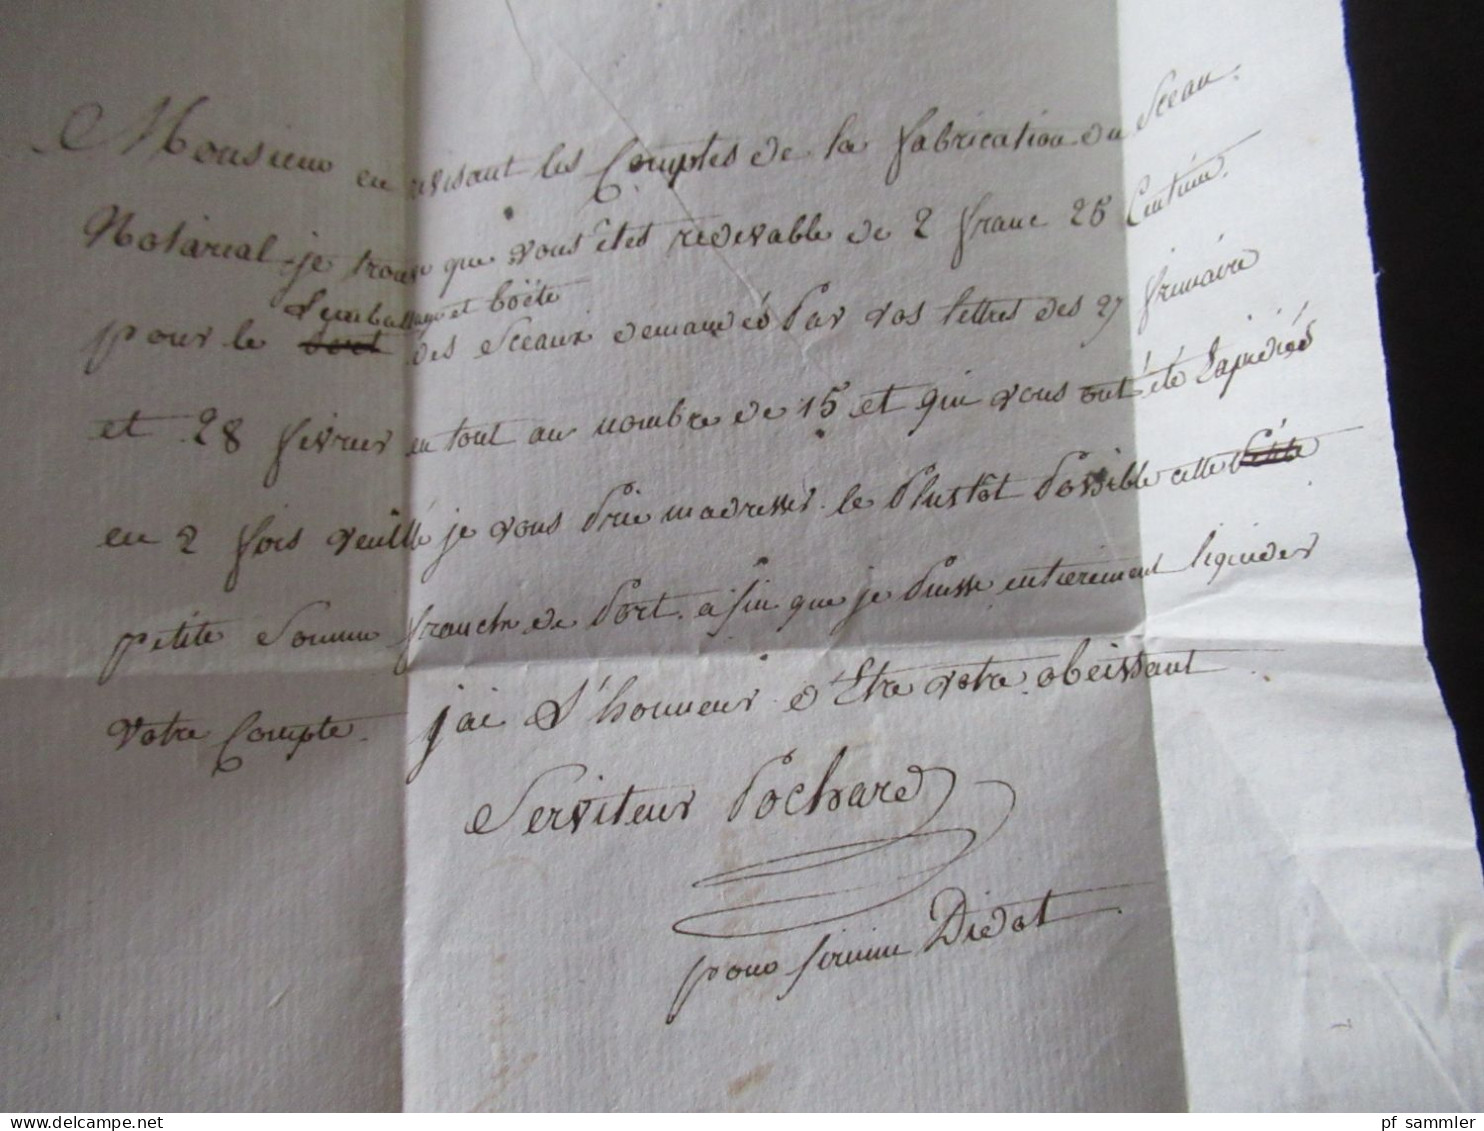 Monsieur en revisant les Comptes de la fabrication du Sceau
Notarial, je trouve que vous êtes redevable de 2 franc 25 Centim.
l'emballage et boëte
pour le port des Sceaux demandés Par vos lettres des 27 frimaire
et 28 fevrier en tout au nombre de 15 et qui vous ont été Expédiés
en 2 fois veuillé je vous Prie m'adresser le Plustôt Possible cette Petite
petite Somme franche de Port. afin que je Puisse entierement liquider
votre Compte. j'ai l'honneur d'Etre votre obeissant
Serviteur Pochard
pour firmin Didot
pf_sammler
delcampe.net